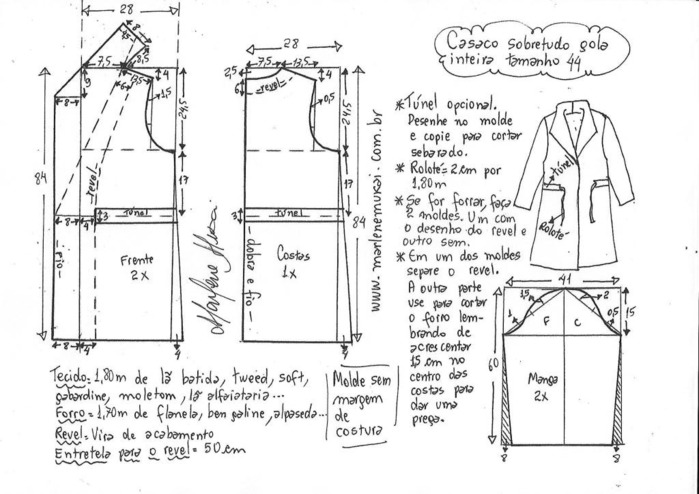 Casaco sobretudo gola
inteira tamanho 44
* Túnel opcional.
Desenhe no molde
e copie para cortar
separado.
* Roloté = 2 cm por
1,80m
* Se for forrar, faça
2 moldes. Um com
o desenho do revel e
outro sem.
* Em um dos moldes
separe o revel.
A outra parte
use para cortar
o forro lem-
brando de
acrescentar
15 cm no
centro das
costas para
dar uma
prega.
28
8
8,5
7,5
13,5
9
6
4
1,5
8
24,5
17
84
revel
túnel
3
4
fio
Frente
2x
8
4
4
28
7,5
13,5
2,5
6
revel
4
0,5
24,5
17
84
túnel
3
dobra e fio
Costas
1x
4
Marlene Mukai
www.marlenemukai.com.br
túnel
Roloté
41
1,5
2
1
F
C
0,5
15
60
Manga
2x
8
8
Tecido = 1,80m de lã batida, tweed, soft,
gabardine, moletom, lã alfaiataria...
Forro = 1,70m de flanela, bengaline, alpaseda...
Revel = Vira de acabamento
Entretela para o revel = 50 cm
Molde sem
margem
de
costura